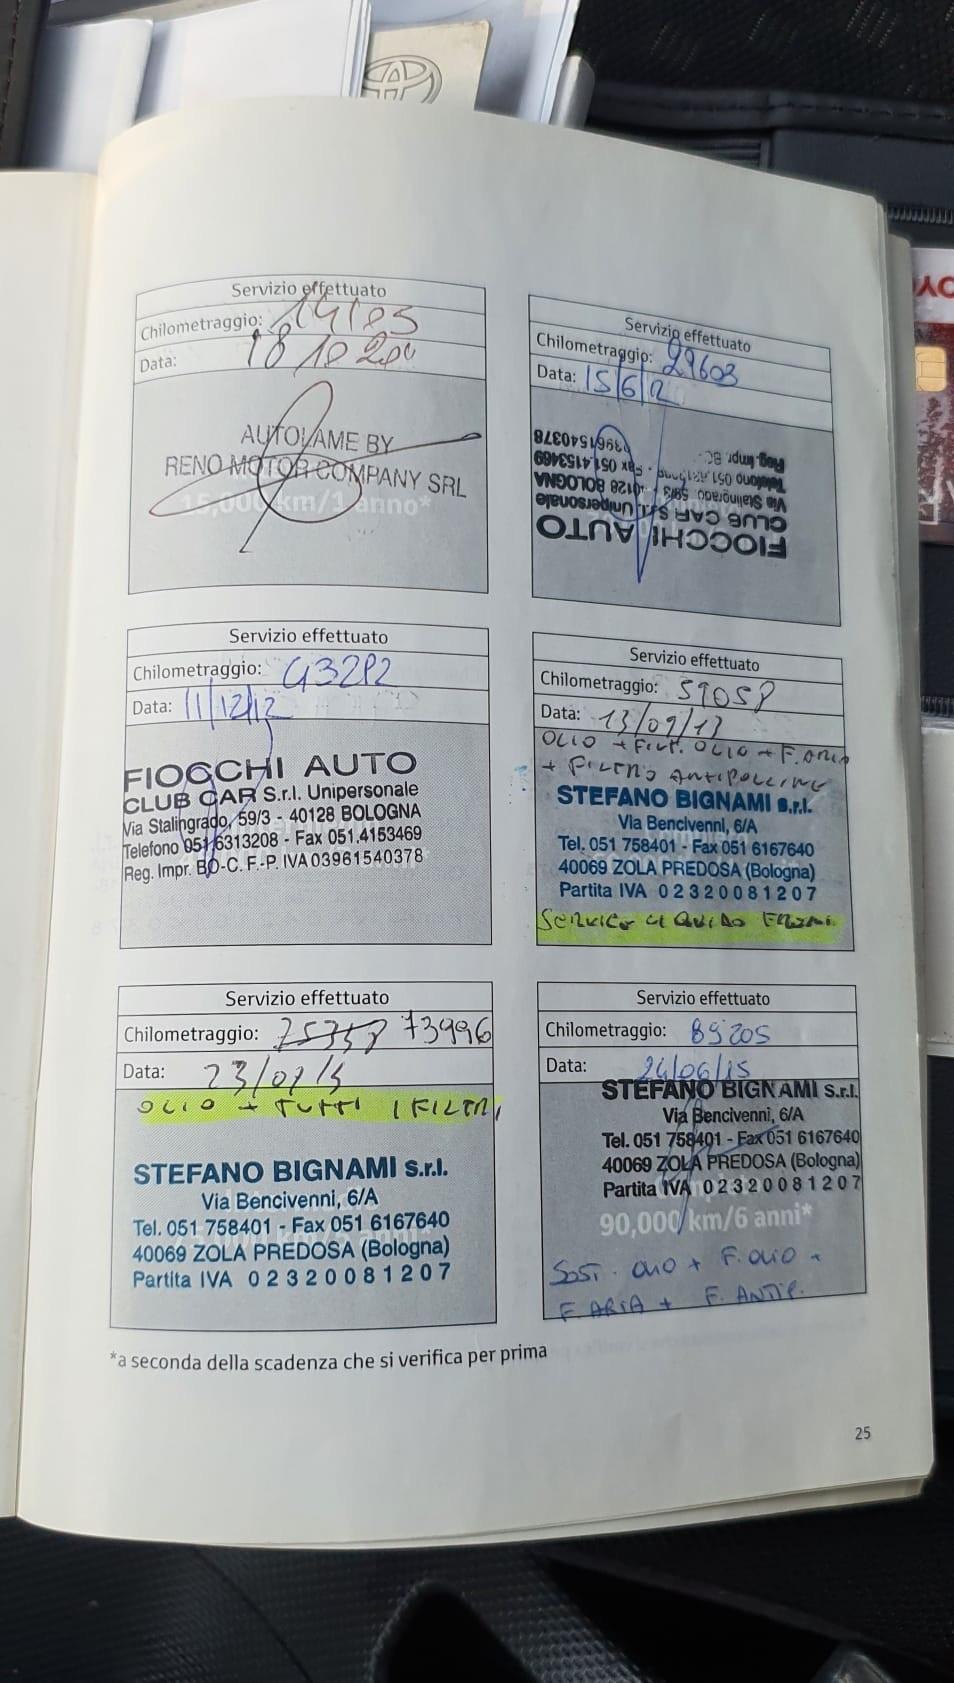 Servizio effettuato
Chilometraggio: 14185
Data: 18 10
AUTOLAME BY
RENO MOTOR COMPANY SRL
15,000 km/1 anno*
Servizio effettuato
Chilometraggio: 29603
Data: 15/6/12
FIOCCHI AUTO
CLUB CAR S.r.l. Unipersonale
Via Stalingrado, 59/3 - 40128 BOLOGNA
Telefono 051 - Fax 051.4153469
Reg. Impr. BO-C. 03961540378
Servizio effettuato
Chilometraggio: 43282
Data: 11/12/12
FIOCCHI AUTO
CLUB CAR S.r.l. Unipersonale
Via Stalingrado, 59/3 - 40128 BOLOGNA
Telefono 051/6313208 - Fax 051.4153469
Reg. Impr. BO-C. F.-P. IVA 03961540378
Servizio effettuato
Chilometraggio: 59058
Data: 13/09/13
OLIO + FILT. OLIO + F. ARIA
+ FILTRO ANTIPOLLINE
STEFANO BIGNAMI s.r.l.
Via Bencivenni, 6/A
Tel. 051 758401 - Fax 051 6167640
40069 ZOLA PREDOSA (Bologna)
Partita IVA 02320081207
SERVICE LIQUIDO FRENI
Servizio effettuato
Chilometraggio: 73996
Data: 23/07/
OLIO + TUTTI I FILTRI
STEFANO BIGNAMI s.r.l.
Via Bencivenni, 6/A
Tel. 051 758401 - Fax 051 6167640
40069 ZOLA PREDOSA (Bologna)
Partita IVA 02320081207
Servizio effettuato
Chilometraggio: 89205
Data: 24/06/15
STEFANO BIGNAMI s.r.l.
Via Bencivenni, 6/A
Tel. 051 758401 - Fax 051 6167640
40069 ZOLA PREDOSA (Bologna)
Partita IVA 02320081207
90,000 km/6 anni*
SOST. OLIO + F. OLIO +
F. ARIA + F. ANTIP.
*a seconda della scadenza che si verifica per prima
25